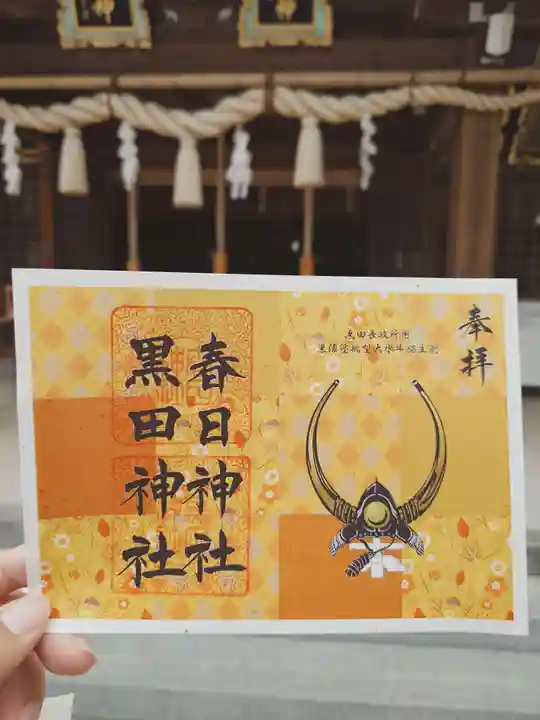 神
神
奉拝
黒田長政所用
黒漆塗桃型大水牛脇立兜
春日神社
黒田神社